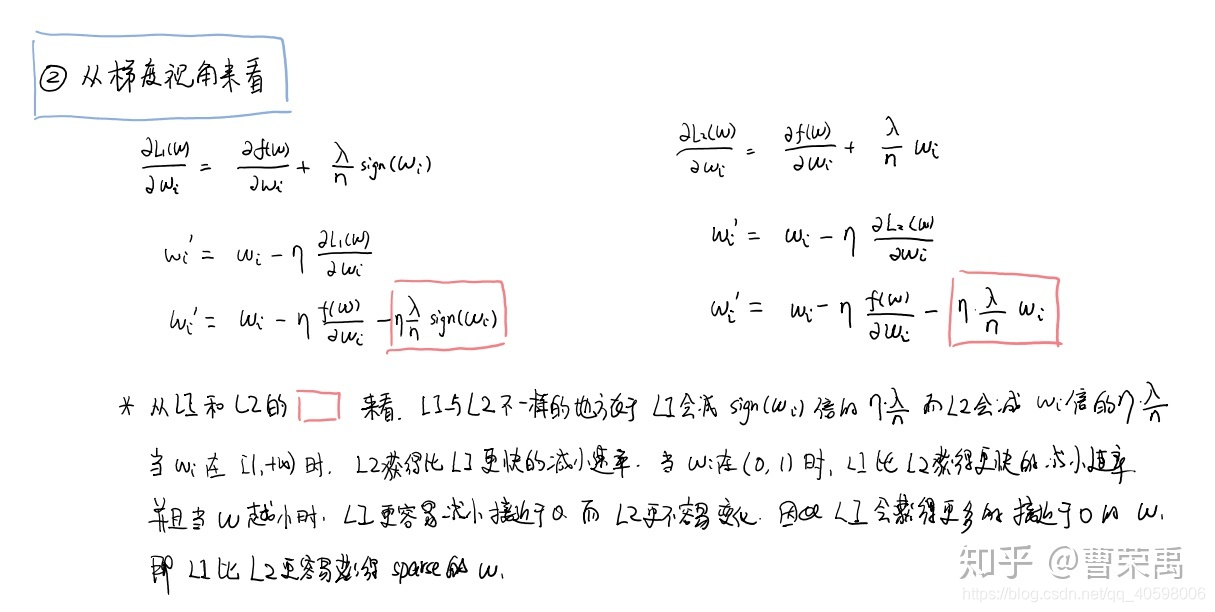 ② 从梯度视角来看
∂L₁(w)/∂wᵢ = ∂f(w)/∂wᵢ + λ/n sign(wᵢ)
wᵢ' = wᵢ - η ∂L₁(w)/∂wᵢ
wᵢ' = wᵢ - η f(w)/∂wᵢ - η λ/n sign(wᵢ)
∂L₂(w)/∂wᵢ = ∂f(w)/∂wᵢ + λ/n wᵢ
wᵢ' = wᵢ - η ∂L₂(w)/∂wᵢ
wᵢ' = wᵢ - η f(w)/∂wᵢ - η·λ/n wᵢ
* 从L1和L2的 来看. L1与L2不一样的地方在于 L1会减 sign(wᵢ) 倍的 η·λ/n 而L2会减 wᵢ倍的η·λ/n
当 wᵢ 在 [1,+∞) 时, L2获得比L1更快的减小速率. 当 wᵢ在(0,1)时, L1比L2获得更快的减小速率.
并且当 w 越小时, L1更容易减小接近于0 而 L2更不容易变化. 因此 L1会获得更多的接近于0的 w.
即 L1比L2更容易获得 sparse的 w.
知乎 @曹荣禹
https://blog.csdn.net/qq_40598006